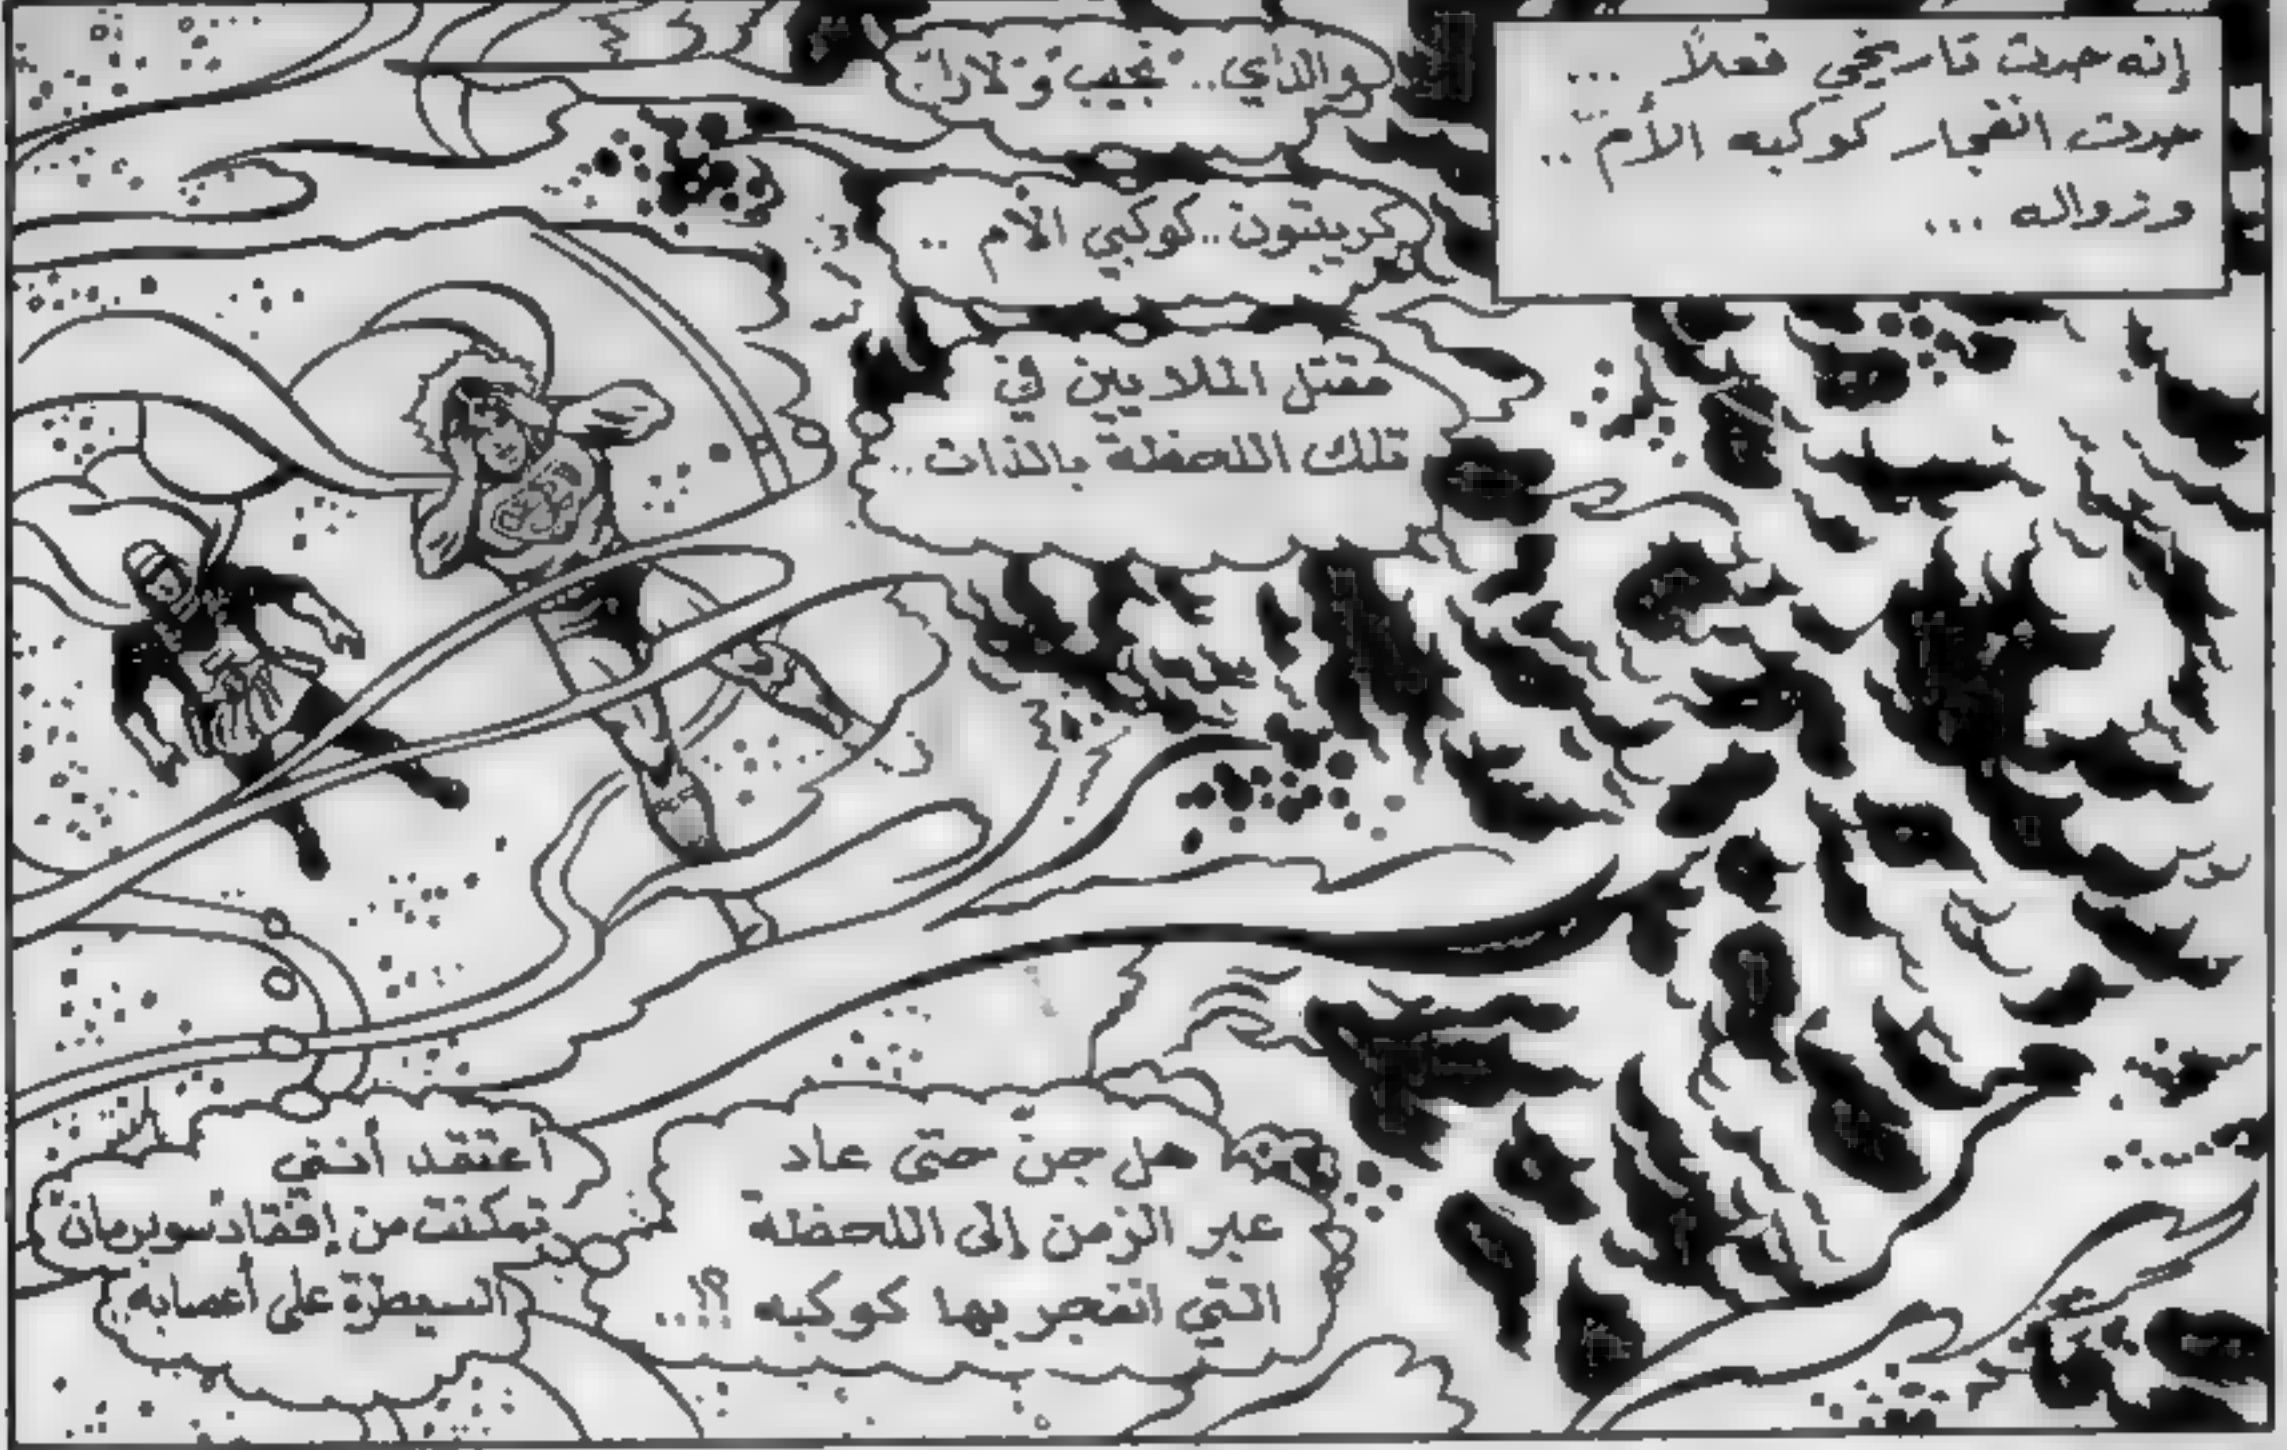 إنه حدث تاريخي فعلاً ...
حدث انفجار كوكبه الأم ..
وزواله ...
والداي.. "نجيب" و"لارا".
كريبتون.. كوكبي الأم ..
مقتل الملايين في
تلك اللحظة بالذات ..
هل جنّ حتى عاد
عبر الزمن إلى اللحظة
التي انفجر بها كوكبه ؟!..
أعتقد أنني
تمكنت من إفقاد "سوبرمان"
السيطرة على أعصابه..